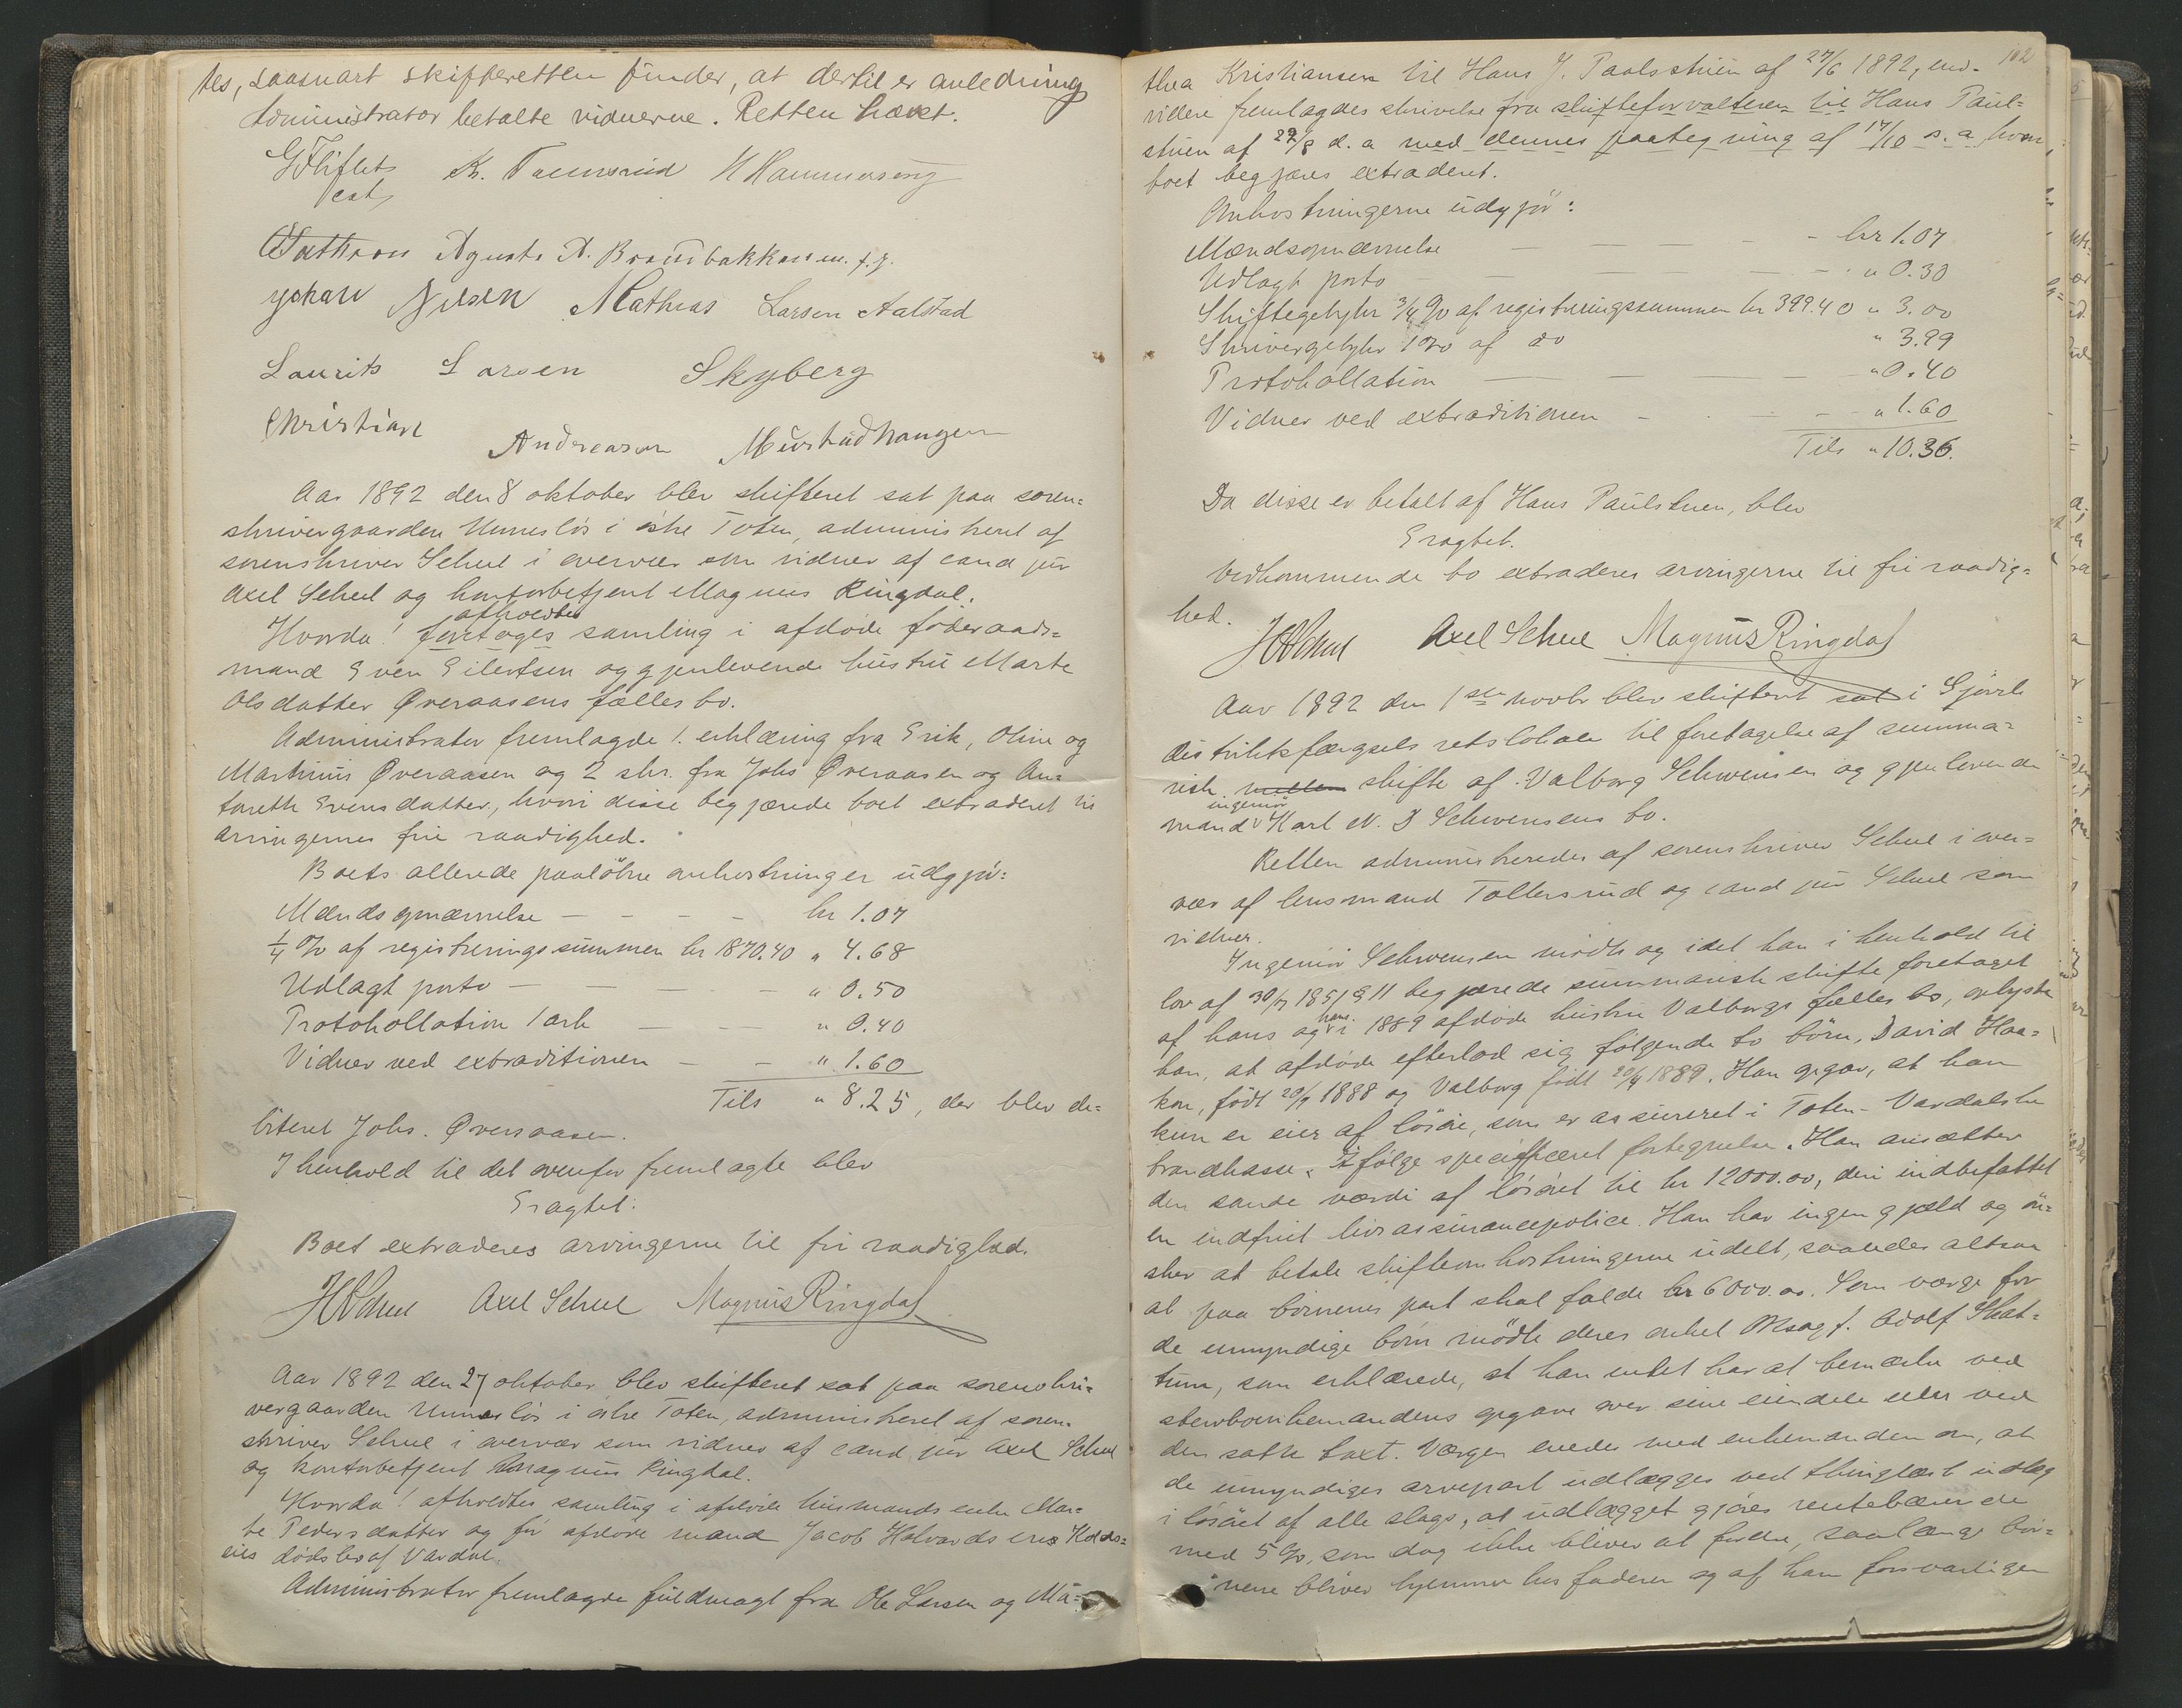 tes, saasnart skifteretten finder, at dertil er anledning
Administrator betalte vidnerne. Retten hævet.
Aar 1892 den 8 oktober blev skifteret sat paa soren=
skrivergaardenUnneslös i østre Toten, administreret af
sorenskriver Scheel i overvær som vidner af cand jur
Axel Scheel og kontorbetjent Magnus Ringdal.
afholdtes
Hvorda! foretoges samling i afdøde föderaads=
mand Even Eilertsen og gjenlevende hustru Marte
Olsdatter Øveraasens fælles bo.
Administrator fremlagde 1. erklæring fra Erik, Oline og
Martinus Øveraasen og 2 skr. fra Johs Øveraasen og An=
Evensdatter, hvori disse begjærede boet extraderet til
arvingernes frie raadighed.
Boets allerede paalöbne omkostninger udgjör:
Mændsopnævnelse - - - - kr 1.07
1/4 % af registreringssummen kr 1870.40 " 4.68
Udlagt porto - - - - " 0.50
Protokollation 1 ark - - - " 0.40
Vidner ved extraditionen - - " 1.60
Tils " 8.25, der blev de=
biteret Johs. Øveraasen.
I henhold til det ovenfor fremlagte blev
Eragtet:
Boet extraderes arvingerne til fri raadighed.
Axel Scheel Magnus Ringdal
Aar 1892 den 27 oktober blev skifteret sat paa sorenskri=
vergaarden Unneslös i østre Toten, administreret af soren=
skriver Scheel i overvær som vidner af cand jur Axel Scheel
og kontorbetjent Magnus Ringdal.
Hvorda! afholdtes samling i afdöde husmandsenke Mar=
te Pedersdatter og för afdöde mand Jacob Halvardsens
eies dödsbo af Vardal.
Administrator fremlagde fuldmagt fra Ole Larsen og Ma=
Mathias Larsen Aalstad
Laurits Larsen Skyberg
Christian Andreasen
102
thea Kristiansen til Hans J. Paulsstuen af 27/6 1892, end=
videre fremlagdes skrivelse fra skifteforvalteren til Hans Paul=
stuen af 22/8 d. a med dennes paategning af 17/10 s. a hvori
boet begjæres extraderet.
Omkostningerne udgjör:
Mændsopnævnelse - - - - kr 1.07
Udlagt porto - - - - " 0.30
Skiftegebyhr 3/4 % af registreringssummen kr 399.40 " 3.00
Skrivergebyhr 1 % af do " 3.99
Protokollation - - - " 0.40
Vidner ved extraditionen - - - " 1.60
Tils " 10.36.
Da disse er betalt af Hans Paulstuen, blev
Eragtet.
Vedkommende bo extraderes arvingerne til fri raadig=
hed.
Axel Scheel Magnus Ringdal
Aar 1892 den 1ste novbr blev skifteret sat i Gjøvik
distriktsfængsels retslokale til foretagelse af summa=
risk skifte af Valborg Schwensen og gjenlevende
ingeniör
mand Karl N. D Schwensens bo.
Retten administreredes af sorenskriver Scheel i over=
vær af lensmand Tollersrud og cand jur Scheel som
vidner.
Ingeniör Schwensen mödte og idet han i henhold til
lov af 30/7 1851 § 11 begjærede summarisk skifte foretaget
af hans og hans i 1889 afdöde hustru Valborgs fælles bo, oplyste
han, at afdöde efterlod sig fölgende to börn, David Haa=
kon, födt 20/7 1888 og Valborg födt 20/4 1889. Han opgav, at han
kun er eier af lösöre, som er assureret i Toten-Vardalske
brandkasse, ifölge specificeret fortegnelse. Han ansætter
den sande værdi af lösöret til kr 12000.00, deri indbefattet
en indfriet livsassurancepolice. Han har ingen gjæld og ön=
sker at betale skifteomkostningerne udelt, saaledes altsaa
at paa börnenes part skal falde kr 6000.00. Som værge for
de umyndige börn mödte deres onkel Adolf Skat=
tum, som erklærede, at han intet har at bemærke ved
sterboenkemandens opgave over sine eiendele eller ved
den satte taxt. Værgen enedes med enkemanden om, at
de umyndiges arvepart udlægges ved thinglæst udlæg
i lösöret af alle slags, at udlægget gjöres rentebærende
med 5 %, som dog ikke bliver at fordre, saalænge bör=
nene bliver hjemme hos faderen og af ham forsvarligen